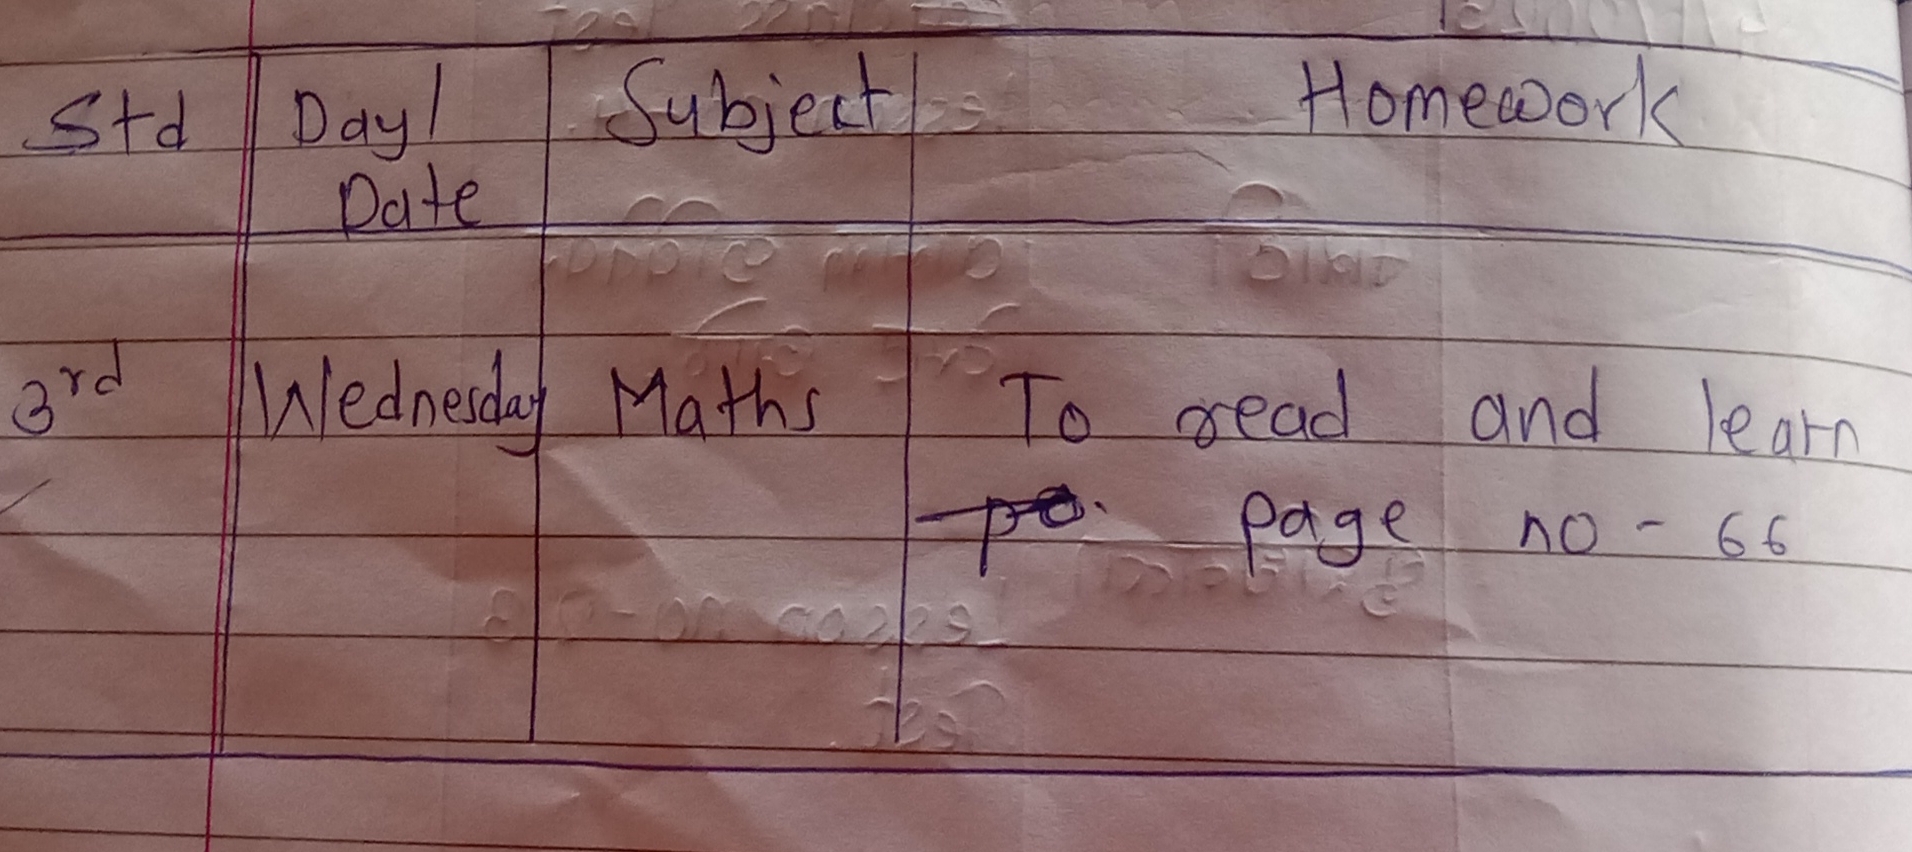 Std Day/ Subject Homework
Date
3rd Wednesday Maths To read and learn
page no - 66